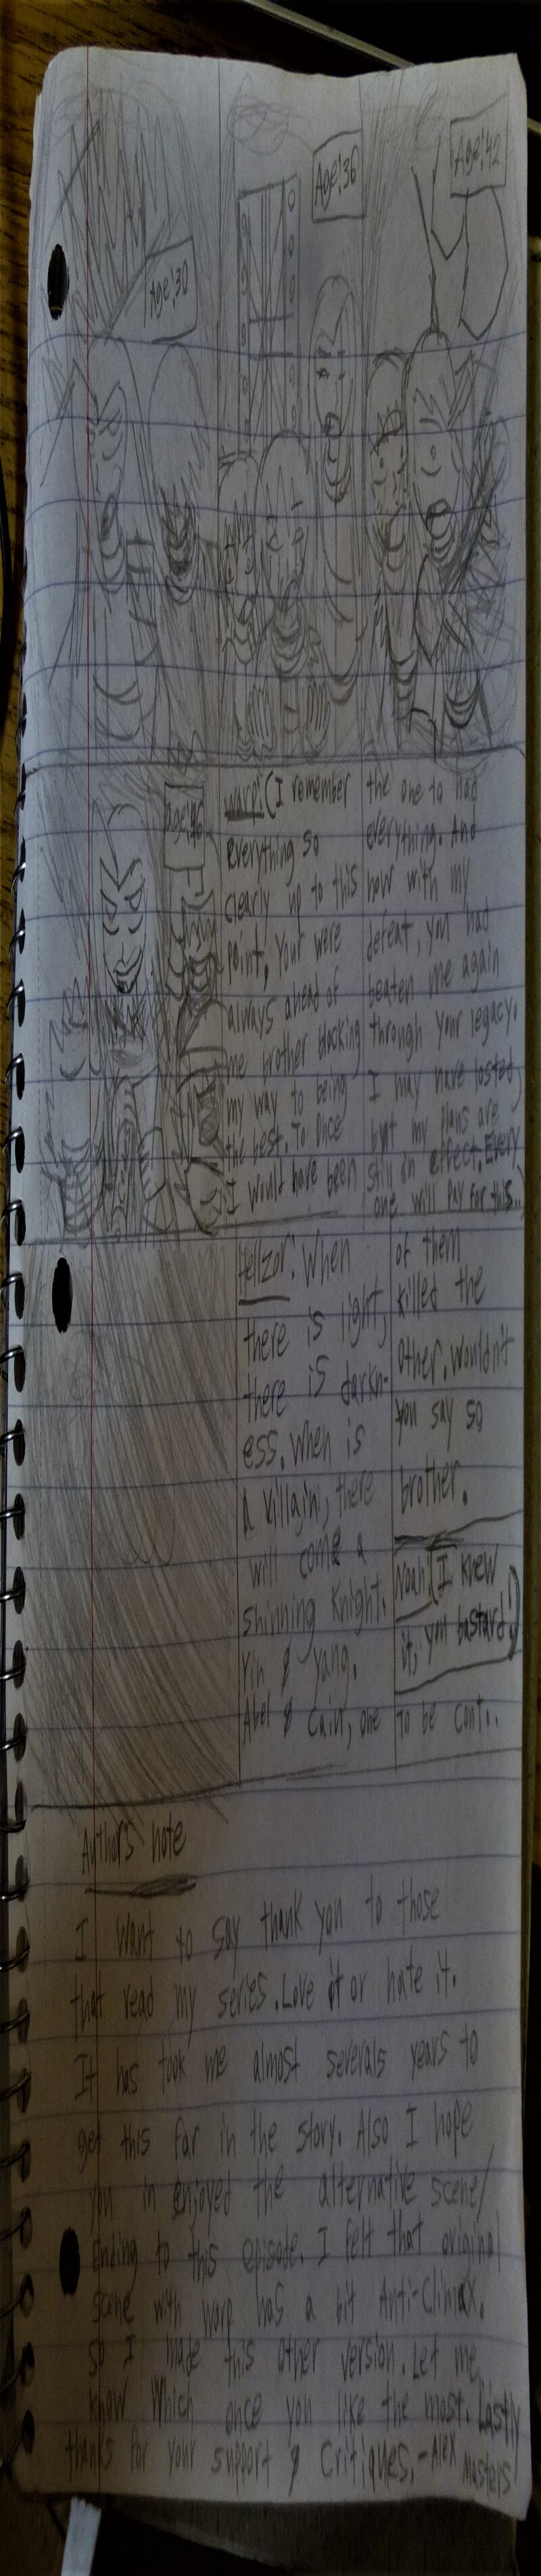 Age: 30
Age: 36
Age: 42
Age: 46
Warp: (I remember
everything so
clearly up to this
point, Your were
always ahead of
me brother blocking
my way to being
the best. To once
I would have been
the one to had
everything. And
now with my
defeat, you had
beaten me again
through your legacy.
I may have losted
but my plans are
still in effect. Every
one will pay for this..)
Hellzor: When
there is light,
there is darkn-
ess. When is
A villain, there
will come a
shinning Knight.
Yin & yang.
Abel & Cain, one
of them
killed the
other. Wouldn't
you say so
brother.
Noah: (I knew
it, you bastard.)
To be cont..
Author's note
I want to say thank you to those
that read my series. Love it or hate it.
It has took me almost severals years to
get this far in the story. Also I hope
you in enjoyed the alternative scene/
Ending to this episode. I felt that original
scene with warp has a bit Anti-Climax.
So I made this other version. Let me
know which once you like the most. Lastly
thanks for your support & Critiques. -Alex Masters